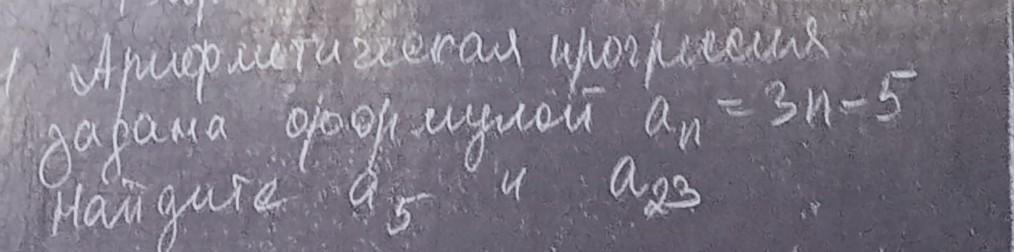 1 Арифметическая прогрессия
задана формулой aₙ = 3n - 5
Найдите a₅ и a₂₃